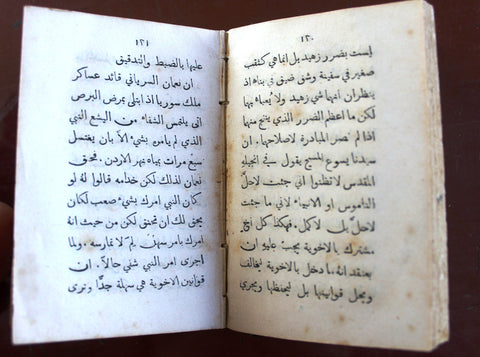 ١٢٠
ليست بضرر زهيد بل انما هي كثقب
صغير في سفينة وشق ضيق في بناء اذ
ينظران انهما شي زهيد ولا يُعباء بهما
لكن ما اعظم الضرر الذي ينتج منهما
اذا لم تصر المبادرة لاصلاحها. ان
سيدنا يسوع المسيح يقول في انجيله
المقدس لا تظنوا اني جئت لاحلَّ
الناموس او الانبياء لاني ما جئت
لاحلَّ بل لاكمل. فهكذا كل اخ
مشترك بالاخوية يجب عليه ان
يعتقد انه ما دخل بالاخوية ليخالف
ويحل قوانينها بل ليحفظها ويجري
١٢١
عليها بالضبط والتدقيق
ان نعمان السرياني قائد عساكر
ملك سوريا اذ ابتلى بمرض البرص
اتى يلتمس الشفاء من اليشع النبي
الذي لم يامره بشيء الا بان يغتسل
سبع مرات بمياه نهر الاردن. فحنق
نعمان لذلك لكن خدامه قالوا له لو
كان النبي امرك بشيء صعب لكان
يحق لك ان تحنق لكن من حيث انه
امرك بامر سهل لمَ لا تمارسه. ولما
اجرى امر النبي شفي حالاً. ان
قوانين الاخوية هي سهلة جدًا ونرى